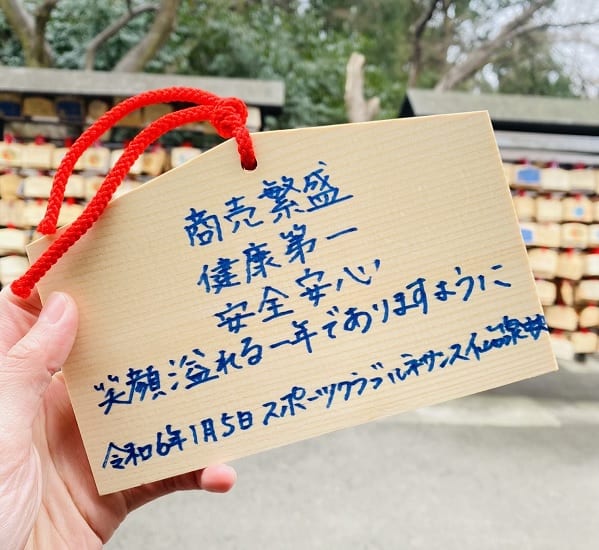 商売繁盛
健康第一
安全安心
笑顔溢れる一年でありますように
令和6年1月5日 スポーツクラブルネサンス仙台泉